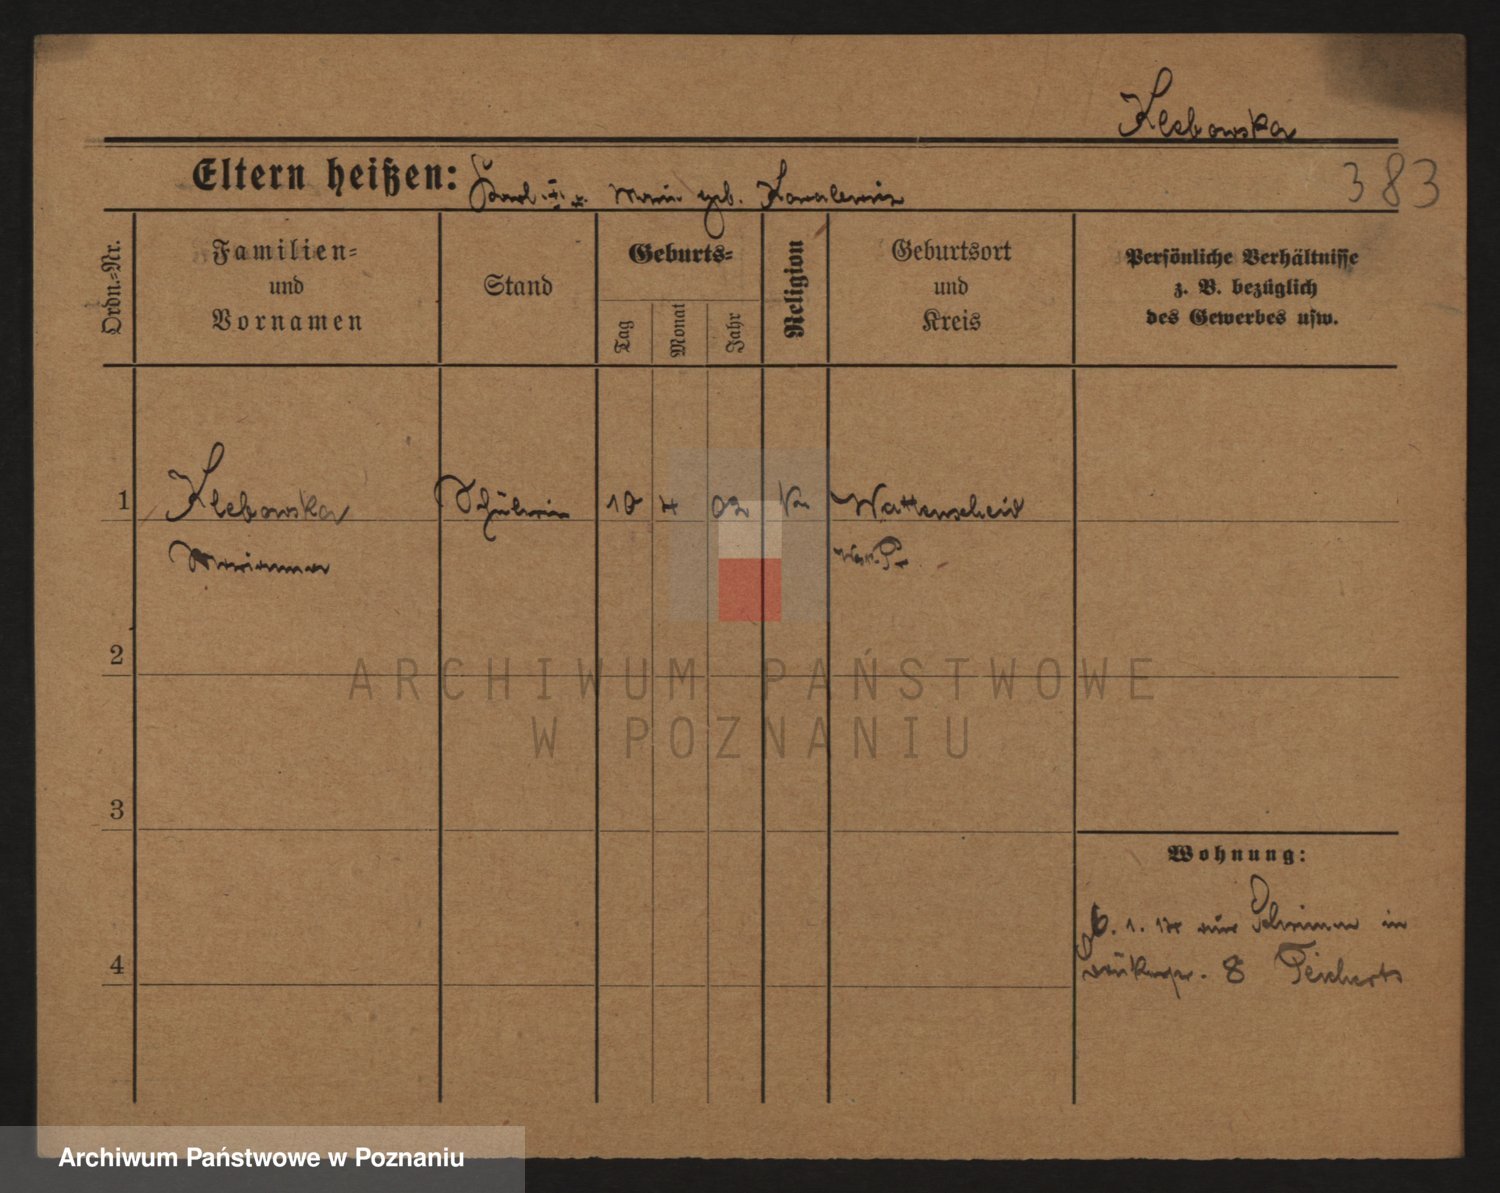 Klebowska
Eltern heißen: Karl u. Marie geb. Kowalewicz
383
Ordn.=Nr.
Familien=
und
Vornamen
Stand
Geburts=
Tag
Monat
Jahr
Religion
Geburtsort
und
Kreis
Persönliche Verhältnisse
z. B. bezüglich
des Gewerbes usw.
1 Klebowska Schülerin 10 4 02 K Wattenscheid
Marianna
2
3
4
Wohnung:
6. 1. 18 aus Schrimm in
8 Teicherts
ARCHIWUM PAŃSTWOWE
W POZNANIU
Archiwum Państwowe w Poznaniu